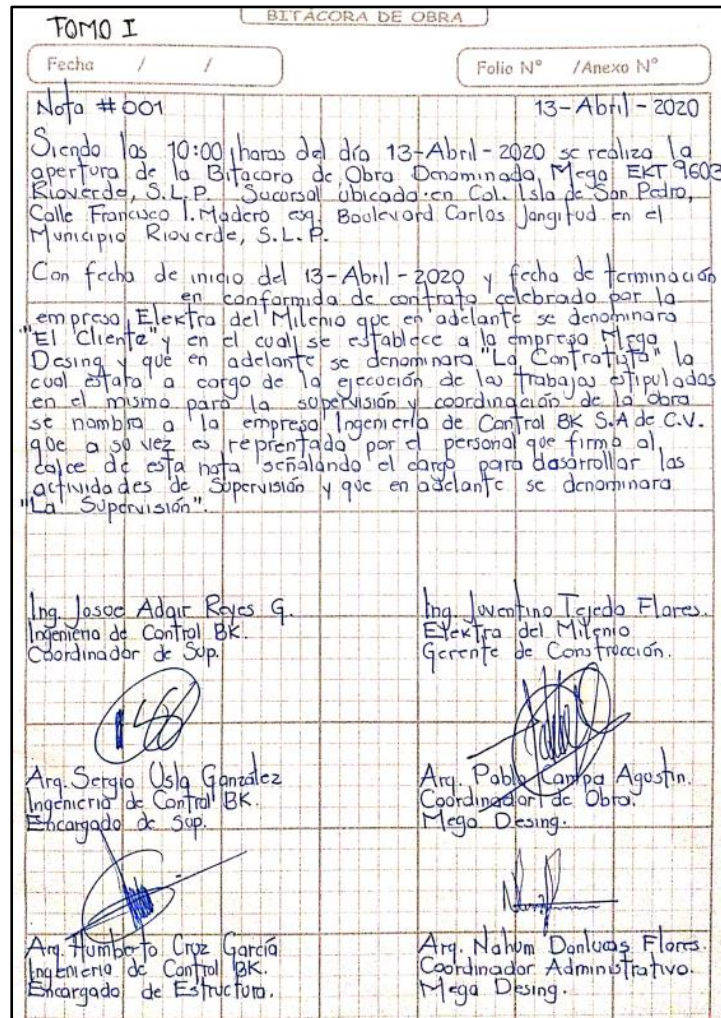 BITÁCORA DE OBRA
TOMO I
Fecha / /
Folio N° /Anexo N°
Nota #001 13-Abril-2020
Siendo las 10:00 horas del día 13-Abril-2020 se realiza la
apertura de la Bitacora de Obra Denominada, Mega EKT 9603
Rioverde, S.L.P. Sucursal ubicado en Col. Isla de San Pedro,
Calle Francisco I. Madero esq. Boulevard Carlos Jangitud en el
Municipio Rioverde, S.L.P.
Con fecha de inicio del 13-Abril-2020 y fecha de terminación
en conformida de contrato celebrado por la
empresa Elektra del Milenio que en adelante se denominara
"El Cliente" y en el cual se establece a la empresa Mega
Desing y que en adelante se denominara "La Contratista" la
cual estara a cargo de la ejecución de los trabajos estipulados
en el mismo para la supervisión y coordinación de la obra
se nombra a la empresa Ingeniería de Control BK S.A de C.V.
que a su vez es reprentada por el personal que firma al
calce de esta nota señalando el cargo para dasarrollar las
actividades de Supervisión y que en adelante se denominara
"La Supervisión".
Ing. Josue Adair Reyes G.
Ingenieria de Control BK.
Coordinador de Sup.
Ing. Juventino Tejeda Flores.
Elektra del Milenio
Gerente de Construcción.
Arq. Sergio Usla González
Ingenieria de Control BK.
Encargado de Sup.
Arq. Pablo Campa Agustin.
Coordinador de Obra.
Mega Desing.
Arq. Humberto Cruz García
Ingenieria de Control BK.
Encargado de Estructura.
Arq. Nahum Donlucas Flores.
Coordinador Administrativo.
Mega Desing.